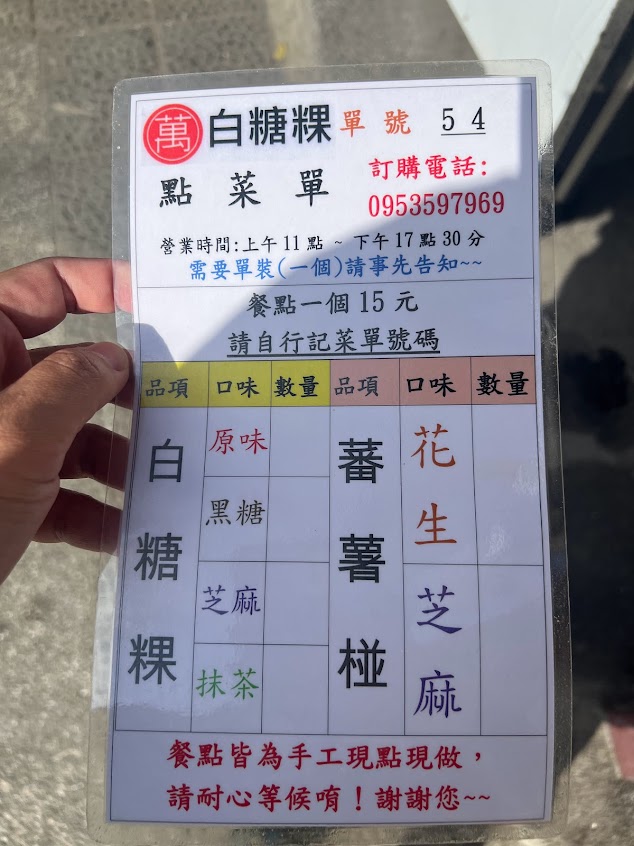 萬 白糖粿 單號 54
點菜單 訂購電話:
0953597969
營業時間:上午11點 ~ 下午17點30分
需要單裝(一個)請事先告知~~
餐點一個15元
請自行記菜單號碼
品項 口味 數量 品項 口味 數量
白糖粿 原味 蕃薯椪 花生
黑糖
芝麻 芝麻
抹茶
餐點皆為手工現點現做，
請耐心等候唷！謝謝您~~